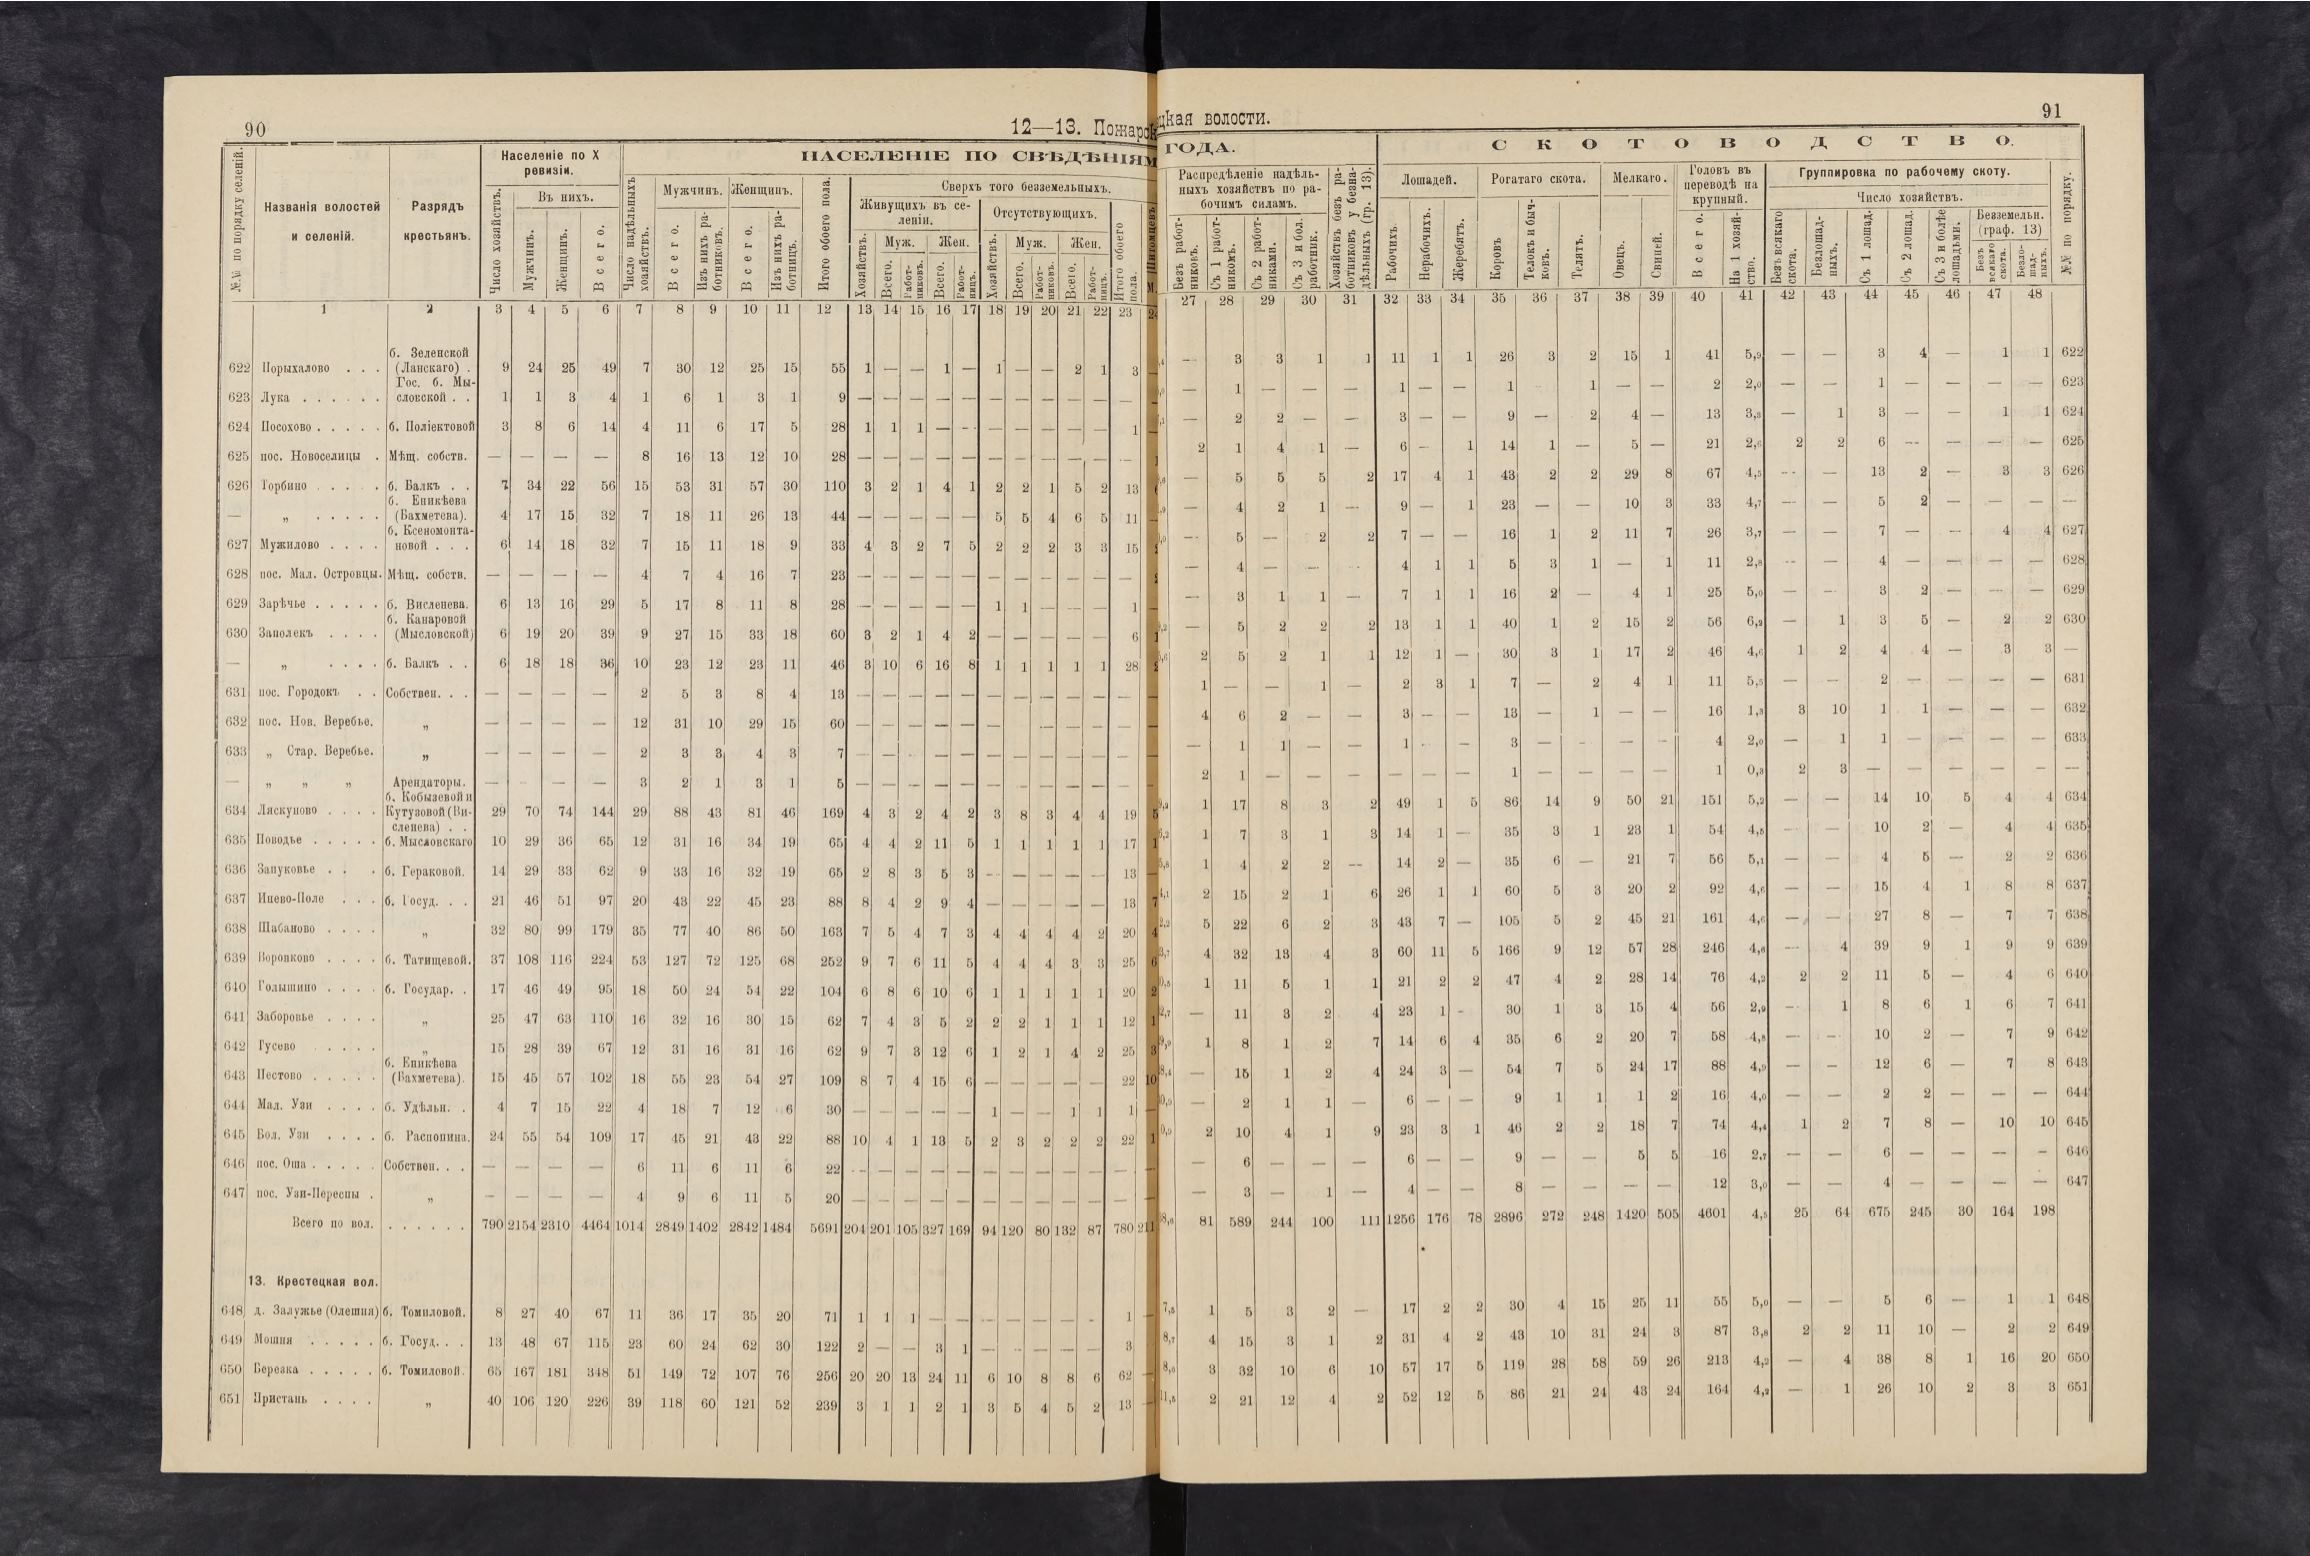 90
12—13. Пожарс
НАСЕЛЕНІЕ ПО СВѢДѢНІЯМ
№№ по порядку селеній.
Названія волостей и селеній.
Разрядъ крестьянъ.
Населеніе по X ревизіи.
Число хозяйствъ.
Въ нихъ.
Мужчинъ.
Женщинъ.
Всего.
Число надѣльныхъ хозяйствъ.
Мужчинъ.
Всего.
Изъ нихъ работниковъ.
Женщинъ.
Всего.
Изъ нихъ работницъ.
Итого обоего пола.
Сверхъ того безземельныхъ.
Живущихъ въ селеніи.
Хозяйствъ.
Муж.
Всего.
Работниковъ.
Жен.
Всего.
Работницъ.
Отсутствующихъ.
Хозяйствъ.
Муж.
Всего.
Работниковъ.
Жен.
Всего.
Работницъ.
Итого обоего пола.
1 2 3 4 5 6 7 8 9 10 11 12 13 14 15 16 17 18 19 20 21 22 23
622 Порыхалово . . . б. Зеленской (Ланскаго) . 9 24 25 49 7 30 12 25 15 55 1 — — 1 — 1 — — 2 1 3
623 Лука . . . . . . Гос. б. Мысловской . . 1 1 3 4 1 6 1 3 1 9 — — — — — — — — — — —
624 Посохово . . . . . б. Поліектовой 3 8 6 14 4 11 6 17 5 28 1 1 1 — — — — — — — 1
625 пос. Новоселицы . Мѣщ. собств. — — — — 8 16 13 12 10 28 — — — — — — — — — — —
626 Торбино . . . . . б. Балкъ . . 7 34 22 56 15 53 31 57 30 110 3 2 1 4 1 2 2 1 5 2 13
— „ . . . . . б. Еникѣева (Бахметева). 4 17 15 32 7 18 11 26 13 44 — — — — — 5 5 4 6 5 11
627 Мужилово . . . . б. Ксеномонтановой . . . 6 14 18 32 7 15 11 18 9 33 4 3 2 7 5 2 2 2 3 3 15
628 пос. Мал. Островцы. Мѣщ. собств. — — — — 4 7 4 16 7 23 — — — — — — — — — — —
629 Зарѣчье . . . . . б. Висленева. 6 13 16 29 5 17 8 11 8 28 — — — — — 1 1 — — — 1
630 Заполекъ . . . . б. Канаровой (Мысловской) 6 19 20 39 9 27 15 33 18 60 3 2 1 4 2 — — — — — 6
— „ . . . . б. Балкъ . . 6 18 18 36 10 23 12 23 11 46 3 10 6 16 8 1 1 1 1 1 28
631 пос. Городокъ . . Собствен. . . — — — — 2 5 3 8 4 13 — — — — — — — — — — —
632 пос. Нов. Веребье. „ — — — — 12 31 10 29 15 60 — — — — — — — — — — —
633 „ Стар. Веребье. „ — — — — 2 3 3 4 3 7 — — — — — — — — — — —
— „ „ „ Арендаторы. — — — — 3 2 1 3 1 5 — — — — — — — — — — —
634 Ляскуново . . . . б. Кобызевой и Кутузовой (Висленева) . . 29 70 74 144 29 88 43 81 46 169 4 3 2 4 2 3 8 3 4 4 19
635 Поводье . . . . . б. Мысловскаго 10 29 36 65 12 31 16 34 19 65 4 4 2 11 5 1 1 1 1 1 17
636 Запуковье . . . б. Гераковой. 14 29 33 62 9 33 16 32 19 65 2 8 3 5 3 — — — — — 13
637 Инево-Поле . . . б. Госуд. . . 21 46 51 97 20 43 22 45 23 88 8 4 2 9 4 — — — — — 13
638 Шабаново . . . . „ 32 80 99 179 35 77 40 86 50 163 7 5 4 7 3 4 4 4 4 2 20
639 Воронково . . . . б. Татищевой. 37 108 116 224 53 127 72 125 68 252 9 7 6 11 5 4 4 4 3 3 25
640 Голышино . . . . б. Государ. . 17 46 49 95 18 50 24 54 22 104 6 8 6 10 6 1 1 1 1 1 20
641 Заборовье . . . . „ 25 47 63 110 16 32 16 30 15 62 7 4 3 5 2 2 2 1 1 1 12
642 Гусево . . . . „ 15 28 39 67 12 31 16 31 16 62 9 7 3 12 6 1 2 1 4 2 25
643 Пестово . . . . . б. Еникѣева (Бахметева). 15 45 57 102 18 55 23 54 27 109 8 7 4 15 6 — — — — — 22
644 Мал. Узи . . . . б. Удѣльн. . 4 7 15 22 4 18 7 12 6 30 — — — — — 1 — — 1 1 1
645 Бол. Узи . . . . б. Распопина. 24 55 54 109 17 45 21 43 22 88 10 4 1 13 5 2 3 2 2 2 22
646 пос. Оша . . . . . Собствен. . . — — — — 6 11 6 11 6 22 — — — — — — — — — — —
647 пос. Узи-Пересны . „ — — — — 4 9 6 11 5 20 — — — — — — — — — — —
Всего по вол. . . . . . . 790 2154 2310 4464 1014 2849 1402 2842 1484 5691 204 201 105 327 169 94 120 80 132 87 780 211
13. Крестецкая вол.
648 д. Залужье (Олешня) б. Томиловой. 8 27 40 67 11 36 17 35 20 71 1 1 1 — — — — — — — 1
649 Мошня . . . . . б. Госуд. . . 13 48 67 115 23 60 24 62 30 122 2 — — 3 1 — — — — — 3
650 Березка . . . . . б. Томиловой. 65 167 181 348 51 149 72 107 76 256 20 20 13 24 11 6 10 8 8 6 62
651 Пристань . . . . „ 40 106 120 226 39 118 60 121 52 239 3 1 1 2 1 3 5 4 5 2 13
цкая волости.
91
ГОДА.
СКОТОВОДСТВО.
Распредѣленіе надѣльныхъ хозяйствъ по рабочимъ силамъ.
Безъ работниковъ.
Съ 1 работникомъ.
Съ 2 работниками.
Съ 3 и бол. работник.
Хозяйствъ безъ работниковъ у безнадѣльныхъ (гр. 13).
Лошадей.
Рабочихъ.
Нерабочихъ.
Жеребятъ.
Рогатаго скота.
Коровъ
Телокъ и бычковъ.
Телятъ.
Мелкаго.
Овецъ.
Свиней.
Головъ въ переводѣ на крупный.
Всего.
На 1 хозяйство.
Группировка по рабочему скоту.
Число хозяйствъ.
Безъ всякаго скота.
Безлошадныхъ.
Съ 1 лошад.
Съ 2 лошад.
Съ 3 и болѣе лошадьми.
Безземельн. (граф. 13)
Безъ всякаго скота.
Безлошадныхъ.
№№ по порядку.
27 28 29 30 31 32 33 34 35 36 37 38 39 40 41 42 43 44 45 46 47 48
— 3 3 1 1 11 1 1 26 3 2 15 1 41 5,9 — — 3 4 — 1 1 622
— 1 — — — 1 — — 1 1 — — 2 2,0 — — 1 — — — — 623
— 2 2 — — 3 — — 9 — 2 4 — 13 3,3 — 1 3 — — 1 1 624
2 1 4 1 — 6 — 1 14 1 — 5 — 21 2,6 2 2 6 — — — — 625
— 5 5 5 2 17 4 1 43 2 2 29 8 67 4,5 — — 13 2 — 3 3 626
— 4 2 1 — 9 — 1 23 — — 10 3 33 4,7 — — 5 2 — — — —
— 5 — 2 2 7 — — 16 1 2 11 7 26 3,7 — — 7 — — 4 4 627
— 4 — — — 4 1 1 5 3 1 — 1 11 2,8 — — 4 — — — — 628
— 3 1 1 — 7 1 1 16 2 — 4 1 25 5,0 — — 3 2 — — — 629
— 5 2 2 2 13 1 1 40 1 2 15 2 56 6,2 — 1 3 5 — 2 2 630
2 5 2 1 1 12 1 — 30 3 1 17 2 46 4,6 1 2 4 4 — 3 3 —
1 — — 1 — 2 3 1 7 — 2 4 1 11 5,5 — — 2 — — — — 631
4 6 2 — — 3 — — 13 — 1 — — 16 1,3 3 10 1 1 — — — 632
— 1 1 — — 1 — — 3 — — — — 4 2,0 — 1 1 — — — — 633
2 1 — — — — — — 1 — — — — 1 0,3 2 3 — — — — — —
1 17 8 3 2 49 1 5 86 14 9 50 21 151 5,2 — — 14 10 5 4 4 634
1 7 3 1 3 14 1 — 35 3 1 23 1 54 4,5 — — 10 2 — 4 4 635
1 4 2 2 — 14 2 — 35 6 — 21 7 56 5,1 — — 4 5 — 2 2 636
2 15 2 1 6 26 1 1 60 5 3 20 2 92 4,6 — — 15 4 1 8 8 637
5 22 6 2 3 43 7 — 105 5 2 45 21 161 4,6 — — 27 8 — 7 7 638
4 32 13 4 3 60 11 5 166 9 12 57 28 246 4,6 — 4 39 9 1 9 9 639
1 11 5 1 1 21 2 2 47 4 2 28 14 76 4,2 2 2 11 5 — 4 6 640
— 11 3 2 4 23 1 — 30 1 3 15 4 56 2,9 — 1 8 6 1 6 7 641
1 8 1 2 7 14 6 4 35 6 2 20 7 58 4,8 — — 10 2 — 7 9 642
— 15 1 2 4 24 3 — 54 7 5 24 17 88 4,9 — — 12 6 — 7 8 643
— 2 1 1 — 6 — — 9 1 1 1 2 16 4,0 — — 2 2 — — — 644
2 10 4 1 9 23 3 1 46 2 2 18 7 74 4,4 1 2 7 8 — 10 10 645
— 6 — — — 6 — — 9 — — 5 5 16 2,7 — — 6 — — — — 646
— 3 — 1 — 4 — — 8 — — — — 12 3,0 — — 4 — — — — 647
81 589 244 100 111 1256 176 78 2896 272 248 1420 505 4601 4,5 25 64 675 245 30 164 198
1 5 3 2 — 17 2 2 30 4 15 25 11 55 5,0 — — 5 6 — 1 1 648
4 15 3 1 2 31 4 2 43 10 31 24 3 87 3,8 2 2 11 10 — 2 2 649
3 32 10 6 10 57 17 5 119 28 58 59 26 213 4,2 — 4 38 8 1 16 20 650
2 21 12 4 2 52 12 5 86 21 24 43 24 164 4,2 — 1 26 10 2 3 3 651